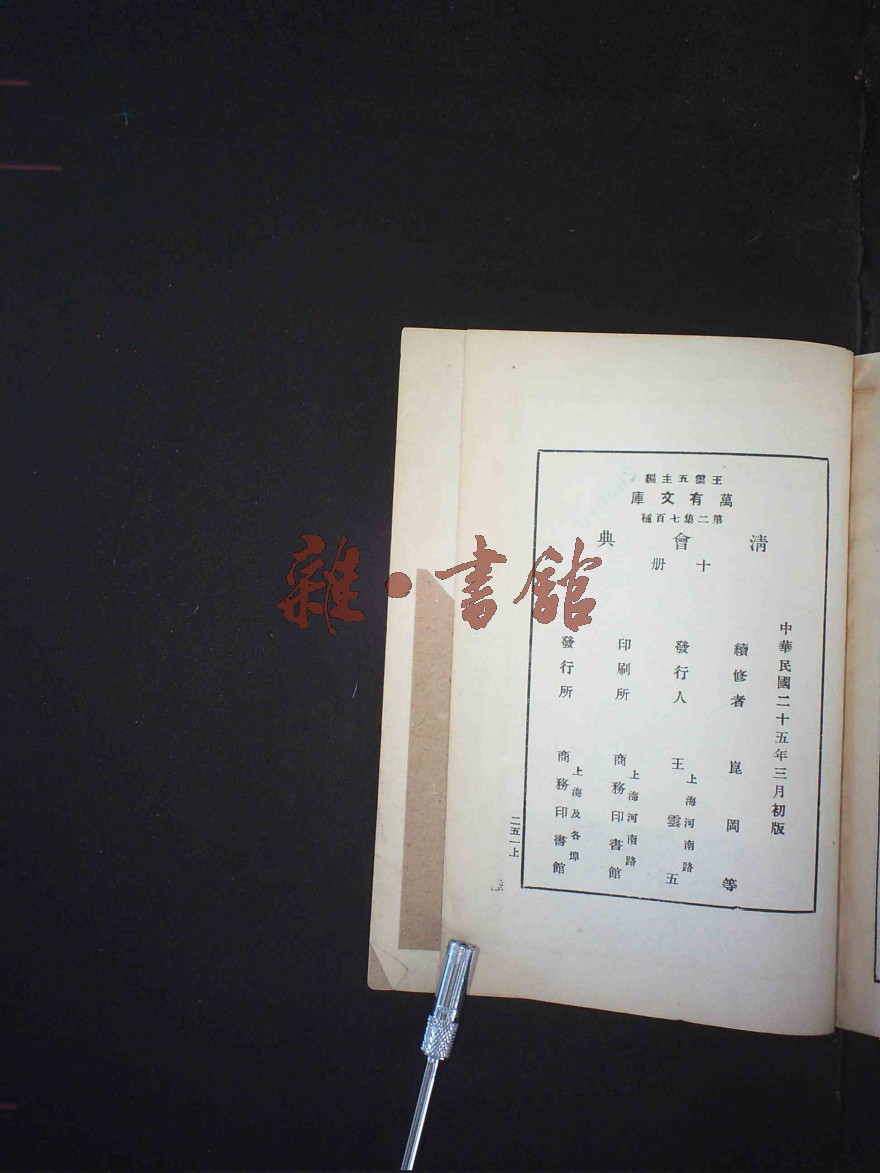 王雲五主編
萬有文庫
第二集七百種
清會典
十册
中華民國二十五年三月初版
續修者 崑岡等
發行人 王雲五
上海河南路
印刷所 商務印書館
上海河南路
發行所 商務印書館
上海及各埠
二五一上
雜·書館